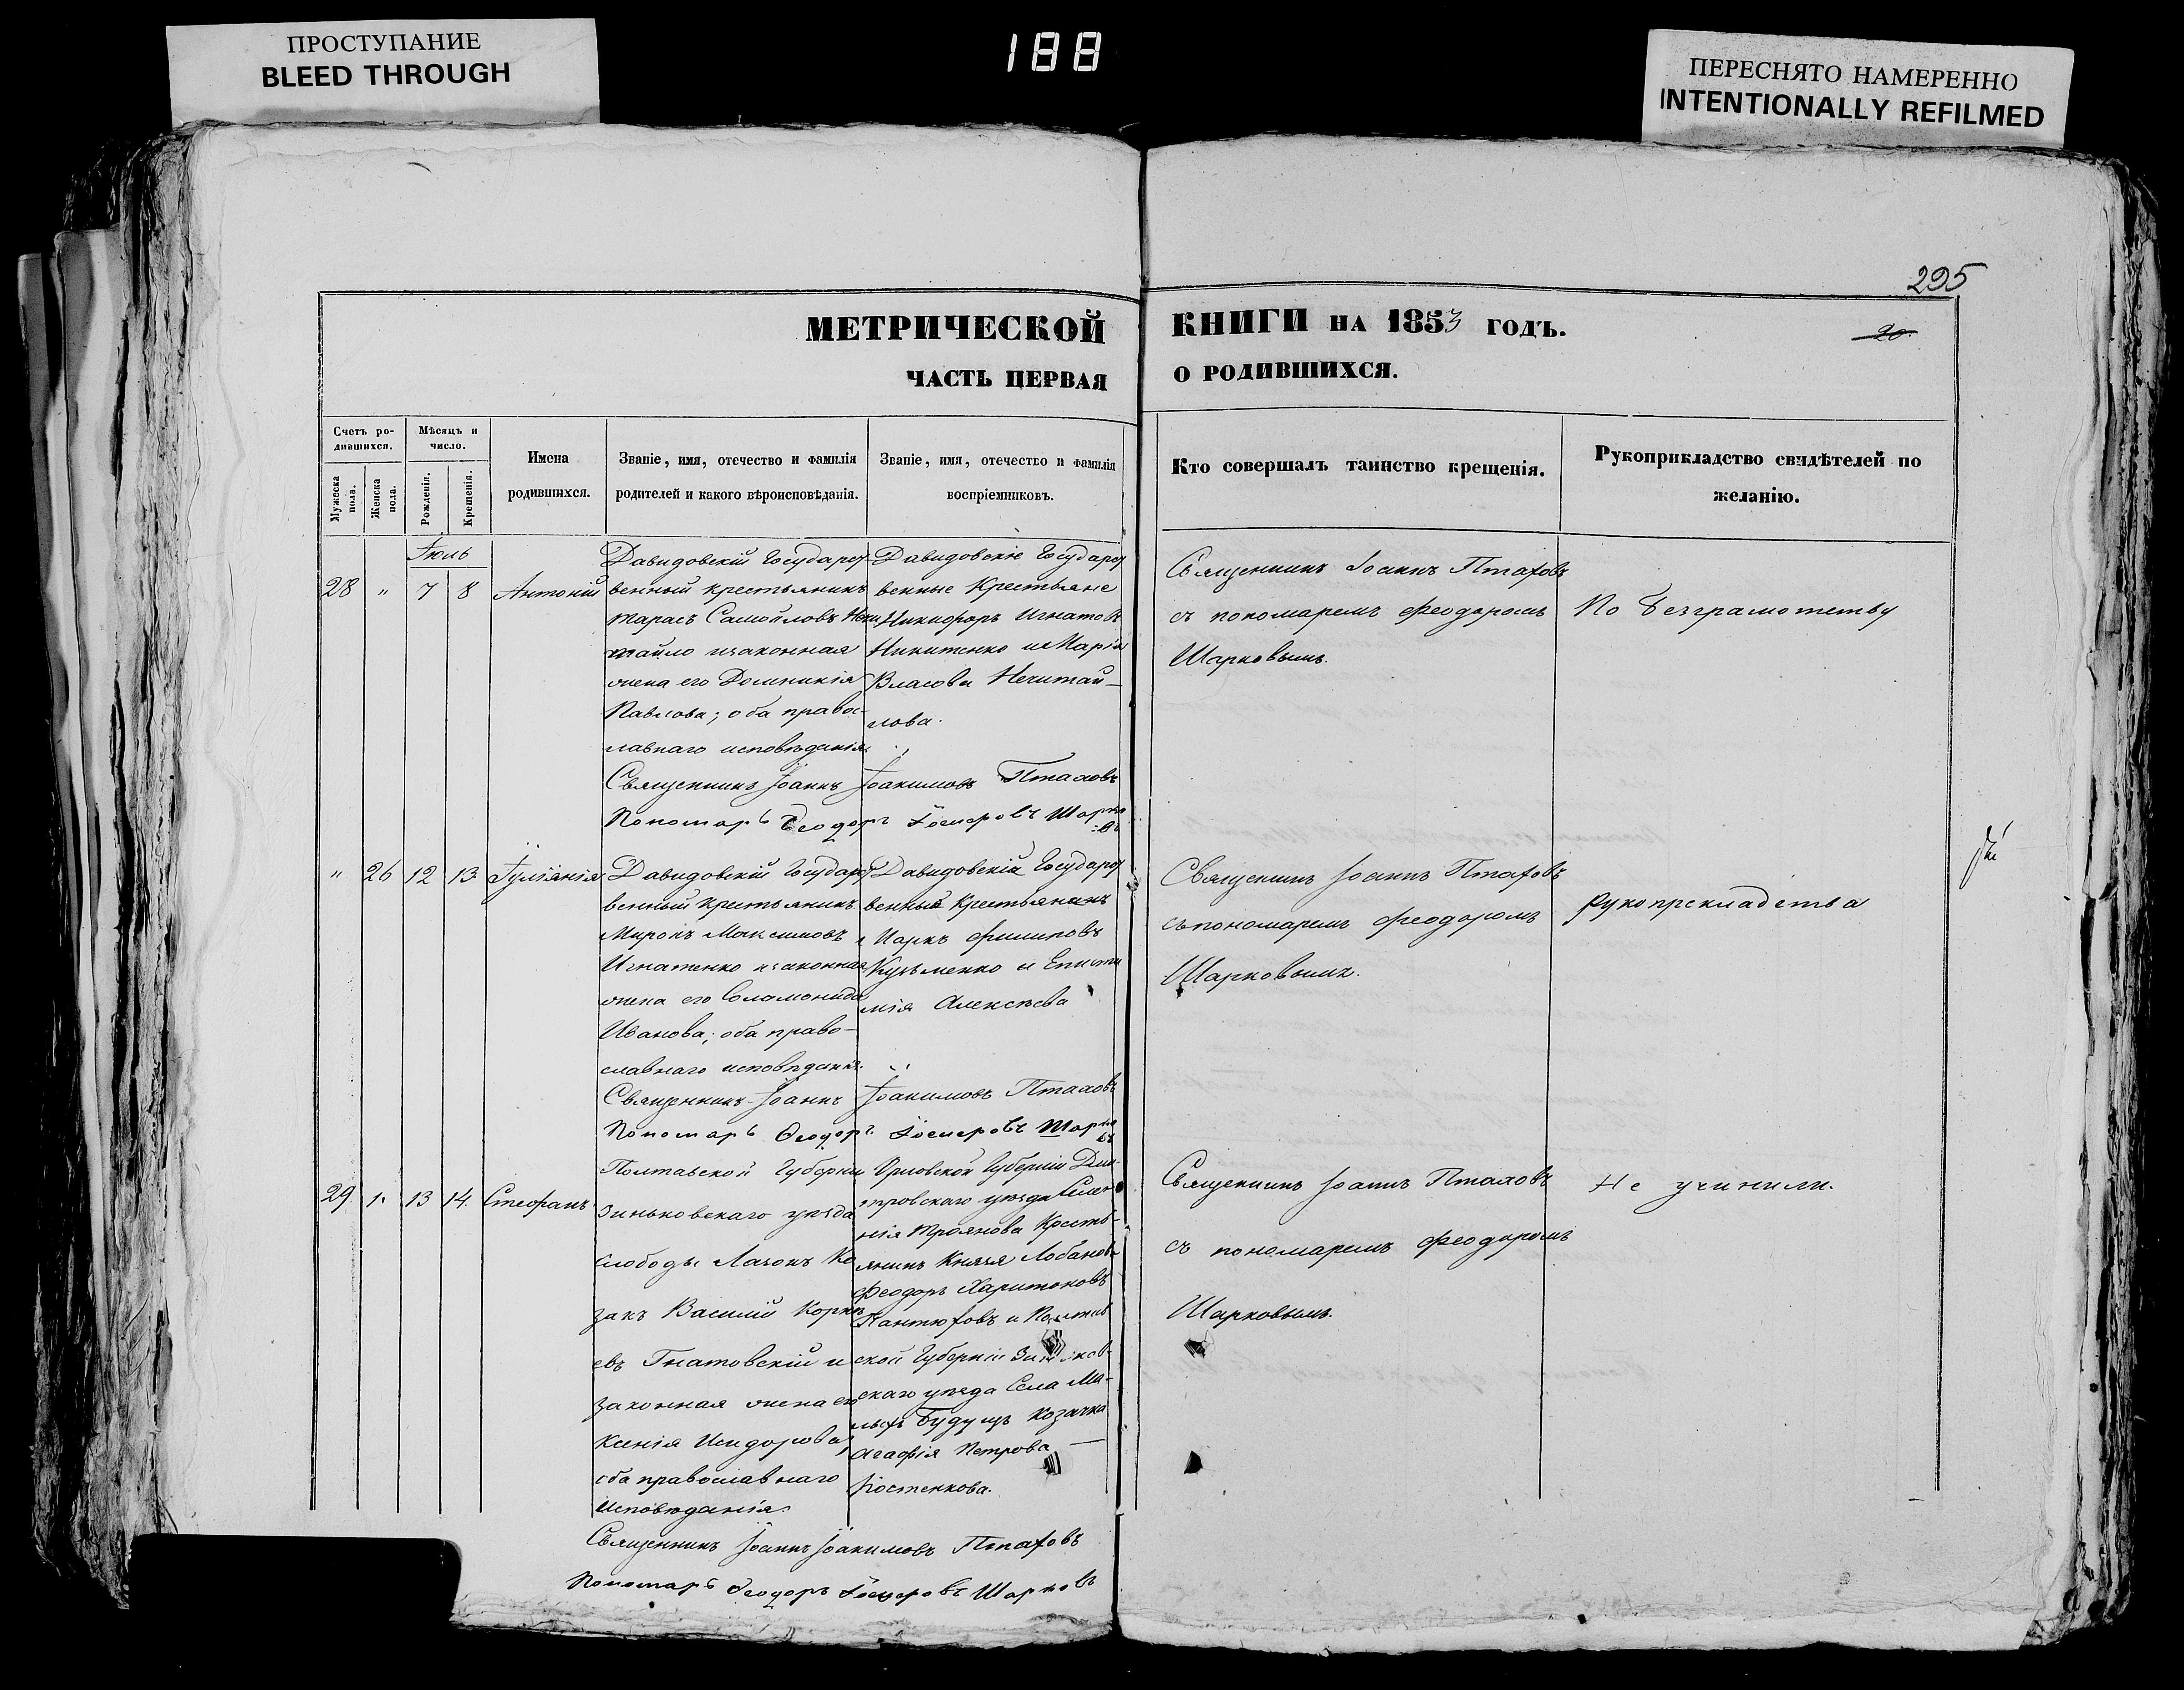 ПРОСТУПАНИЕ
BLEED THROUGH
188
ПЕРЕСНЯТО НАМЕРЕННО
INTENTIONALLY REFILMED
295
МЕТРИЧЕСКОЙ КНИГИ НА 1853 ГОДЪ.
20.
ЧАСТЬ ПЕРВАЯ О РОДИВШИХСЯ.
Счетъ ро-
дившихся.
Мужеска
пола.
Женска
пола.
Мѣсяцъ и
число.
Рожденія.
Крещенія.
Имена
родившихся.
Званіе, имя, отечество и фамилія
родителей и какого вѣроисповѣданія.
Званіе, имя, отечество и фамилія
воспріемниковъ.
Кто совершалъ таинство крещенія.
Рукоприкладство свидѣтелей по
желанію.
Іюль
28 " 7 8 Антоній
Давидовскій Государст
венный крестьянинъ
Тарасъ Самойловъ Нечи
тайло и законная
жена его Домникія
Павлова; оба правос
лавнаго исповѣданія.
Давидовскіе Государст
венные Крестьяне
Никифоръ Игнатовъ
Никитенко и Марія
Власова Нечитай-
лова.
Священникъ Іоаннъ Птаховъ
съ пономаремъ Феодоромъ
Шарковымъ.
По безграмотству
Священникъ Іоаннъ Іоакимовъ Птаховъ
Пономарь Ѳеодоръ Шарко
въ
" 26 12 13 Іуліанія
Давидовскій Государст
венный крестьянинъ
Миронъ Максимовъ
Игнатенко и законная
жена его Соломонида
Иванова; оба право-
славнаго исповѣданія.
Давидовскій Государст
венный Крестьянинъ
Маркъ Филиповъ
Кузьменко и Еписти
мія Алексѣева
Священникъ Іоаннъ Птаховъ
съ пономаремъ Феодоромъ
Шарковымъ.
рукоприкладства
Священникъ Іоаннъ Іоакимовъ Птаховъ
Пономарь Ѳеодоръ Шарко
въ
29. 13 14. Стефанъ
Полтавской Губерніи
Зиньковскаго уѣзда
слободы Ко
закъ Василій Корнѣ
евъ Гнатовскій и
законная жена его
Ксенія Исидорова,
оба православнаго
исповѣданія.
Орловской Губерніи Дми-
тровскаго уѣзда Селе-
нія Троянова Кресть-
янинъ Князя Лобанова
Феодоръ Харитоновъ
Пантюховъ и Полтав
ской Губерніи Зиньков-
скаго уѣзда Села Ма-
лыхъ Будищъ Козачка
Агафія Петрова
Костенкова.
Священникъ Іоаннъ Птаховъ
съ пономаремъ Феодоромъ
Шарковымъ.
Не учинили.
Священникъ Іоаннъ Іоакимовъ Птаховъ
Пономарь Ѳеодоръ Шарковъ